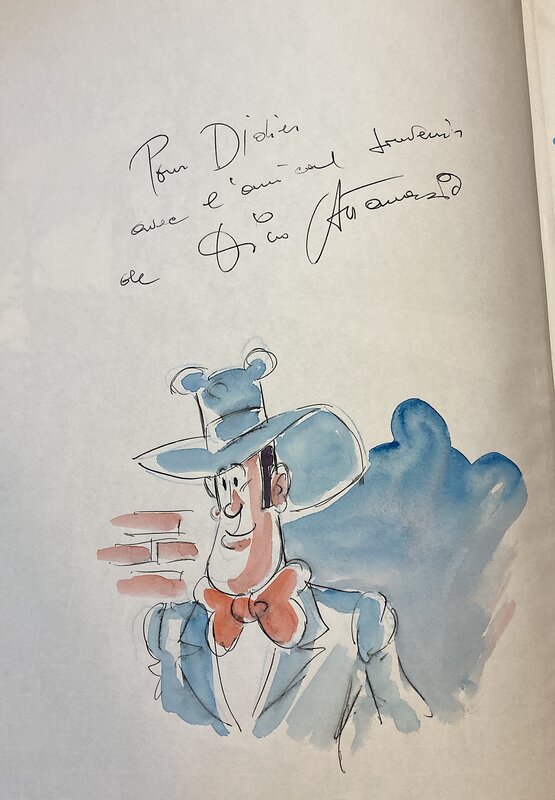 Pour Didier
avec l'amical souvenir
de Dino Attanasio